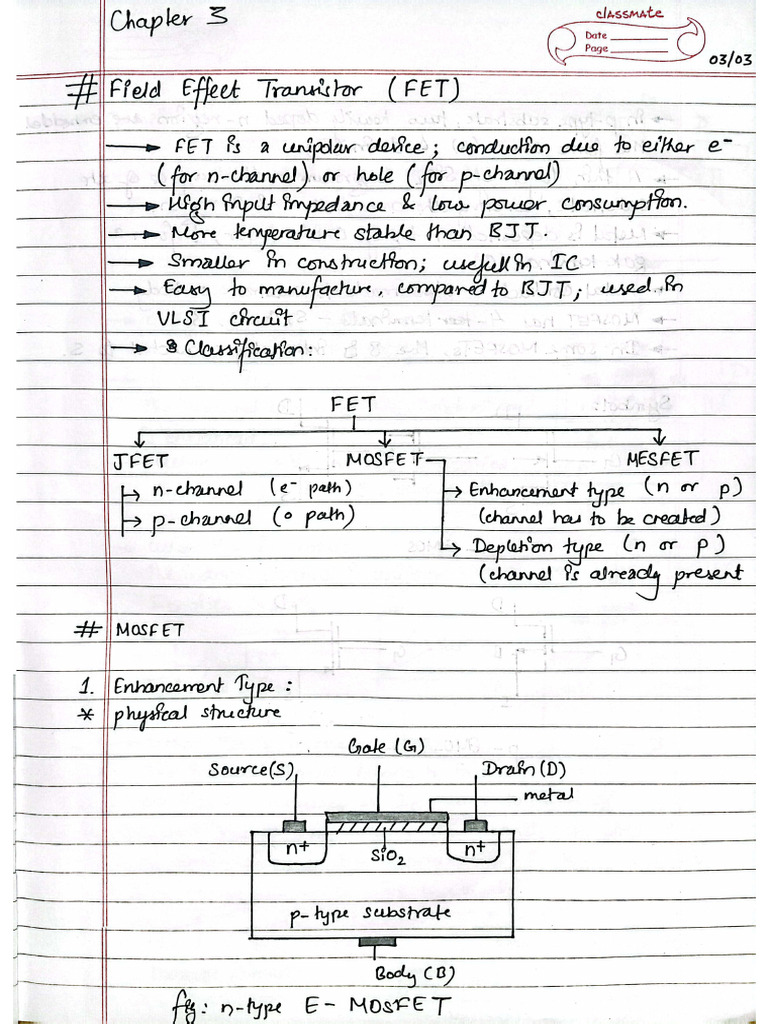 Chapter 3
classmate
Date
Page
03/03
# Field Effect Transistor (FET)
→ FET is a unipolar device; conduction due to either e-
(for n-channel) or hole (for p-channel)
→ High input impedance & low power consumption.
→ More temperature stable than BJT.
→ Smaller in construction; useful in IC
→ Easy to manufacture, compared to BJT; used in
VLSI circuit
→ Classification:
FET
JFET MOSFET MESFET
→ n-channel (e- path) → Enhancement type (n or p)
→ p-channel (o path) (channel has to be created)
→ Depletion type (n or p)
(channel is already present
# MOSFET
1. Enhancement Type:
* physical structure
Gate (G)
Source(S) Drain (D)
metal
n+ SiO2 n+
p-type substrate
Body (B)
fig: n-type E-MOSFET